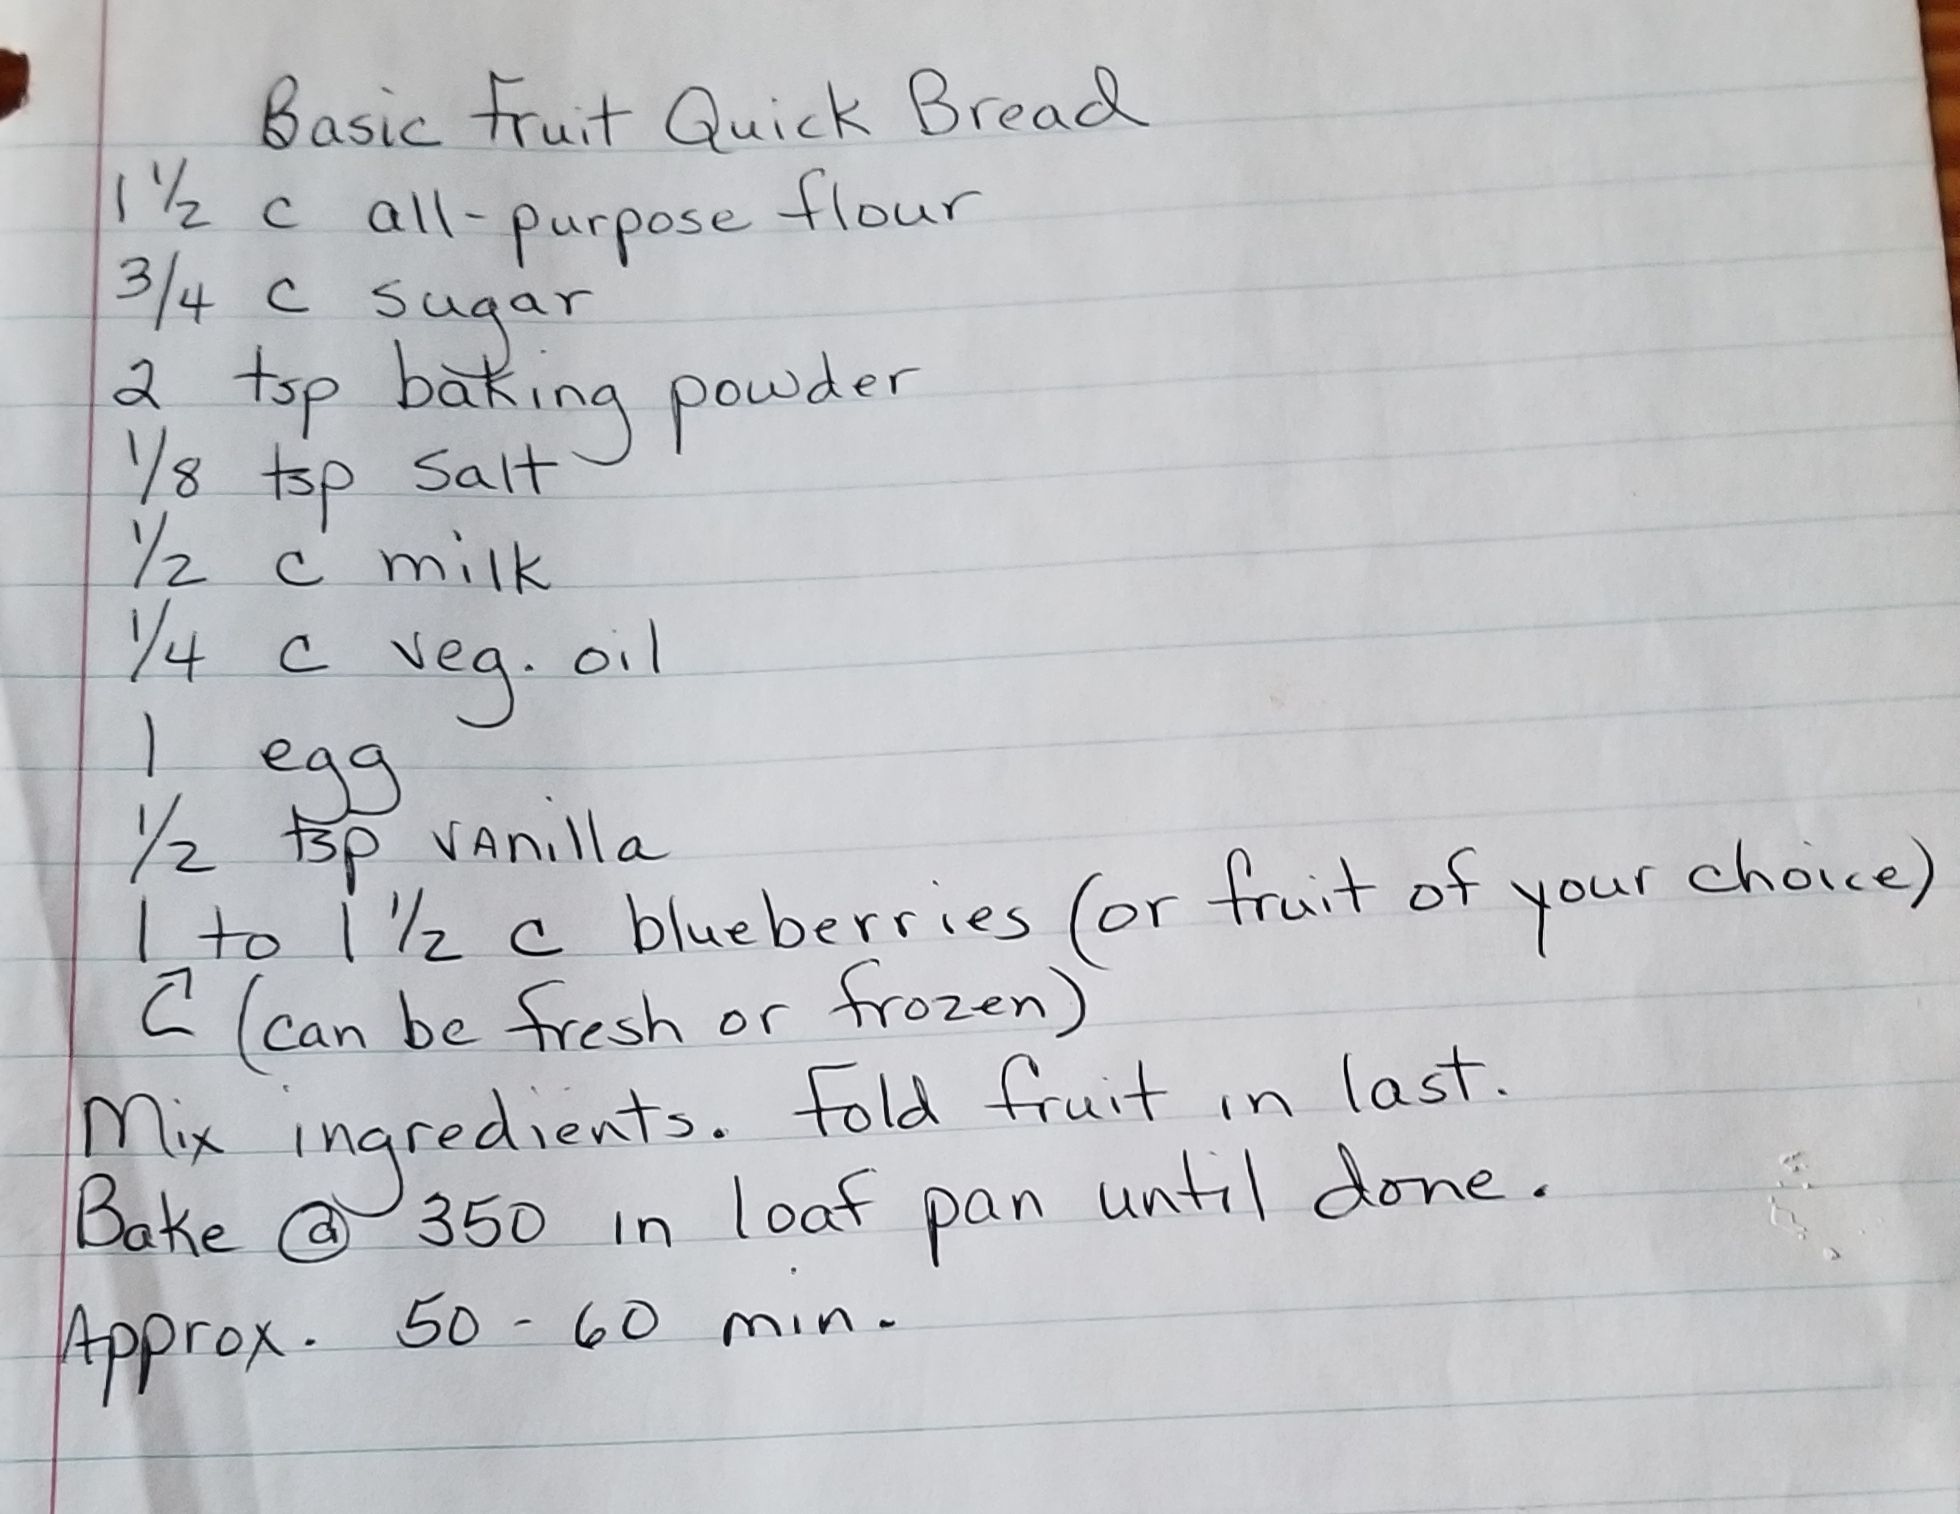 Basic Fruit Quick Bread
1 1/2 c all-purpose flour
3/4 c sugar
2 tsp baking powder
1/8 tsp salt
1/2 c milk
1/4 c veg. oil
1 egg
1/2 tsp vanilla
1 to 1 1/2 c blueberries (or fruit of your choice)
(can be fresh or frozen)
Mix ingredients. Fold fruit in last.
Bake @ 350 in loaf pan until done.
Approx. 50-60 min.